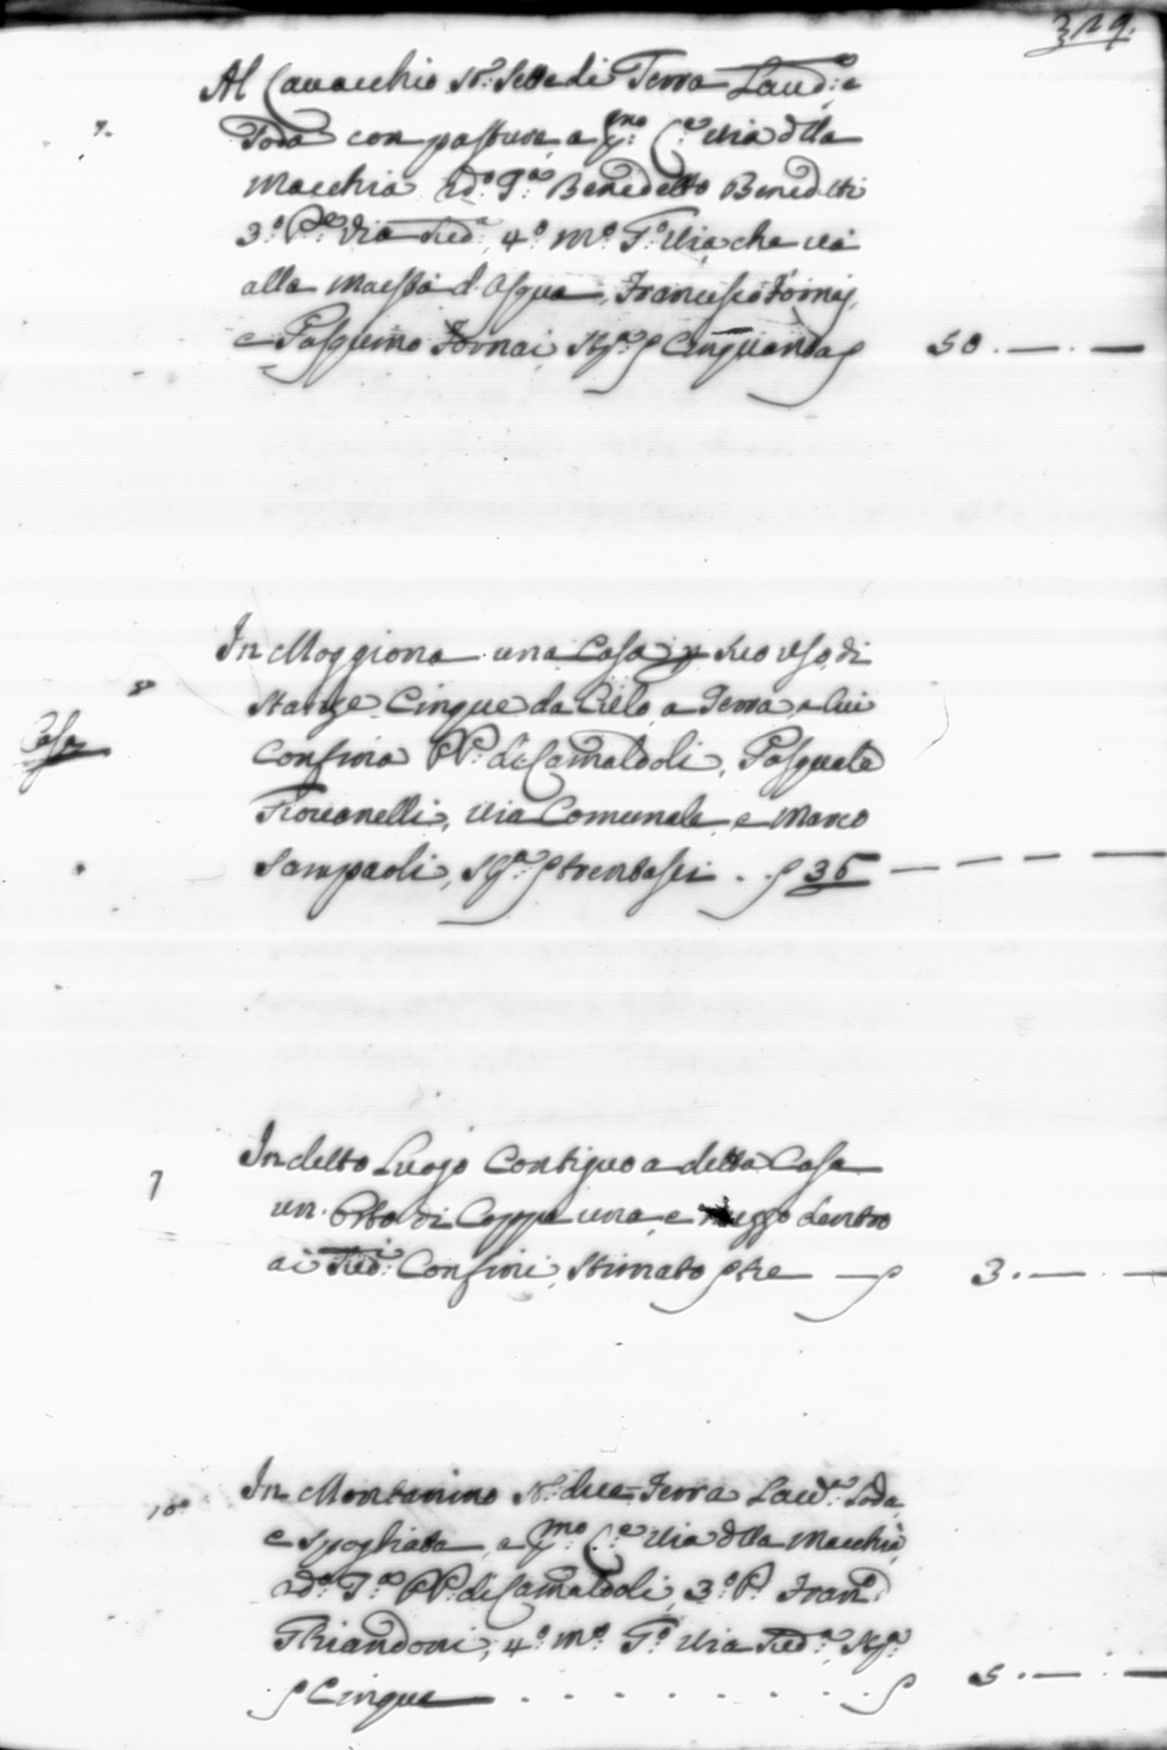 329.
Al Cavacchio St.ª Sette di Terra Laud:ª e
7. Soda con pastura, a p:mo C:e Via dlla
Macchia 2d:º T:º Benedetto Benedetti
3:º P:º Via Sud:ª, 4:º m:º T:º Via che và
alla Maestà d'Asqua, Francesco Fornaj,
e Pasquino Fornai, St:ª S Cinquanta S 50.—.—
In Moggiona una Casa p Suo uso, di
8 Stanze Cinque da Cielo, a Terra, a Cui
Casa
Confina PP: di Camaldoli, Pasquale
Fiovanelli, Via Comunale, e Marco
Sampaoli, St:ª S trentasei . S 36 — — — —
9 In detto Luogo Contiguo a detta Casa
un Orto di Coppe una, e mezzo dentro
ai Sud:i Confini, Stimato S tre — S 3.—.—
In Montanino St:ª due Terra Laud:ª Soda,
10.
e Spogliata, a p:mo C:e Via dlla Macchia,
2d:º T:º PP: di Camaldoli, 3:º P:º Fran:º
Ghiandoni, 4:º m:º T:º Via Sud:ª, St:ª
S Cinque — . . . . . . . S 5.—.—